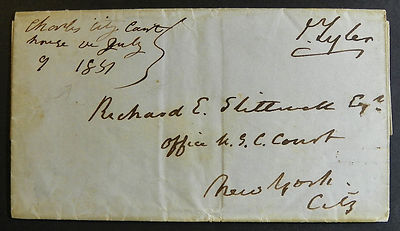 Charles City Court
house Va July
9 1851
J. Tyler
Richard E. Stillwell Esqr
Office U. S. C. Court
New York
City